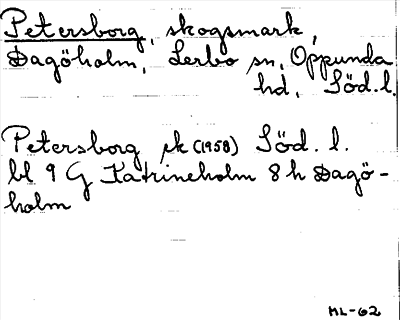 Petersborg, skogsmark,
Dagöholm, Lerbo sn, Oppunda
hd, Söd. l.
Petersborg ek (1958) Söd. l.
bl 9 G Katrineholm 8 h Dagö-
holm
ML-62